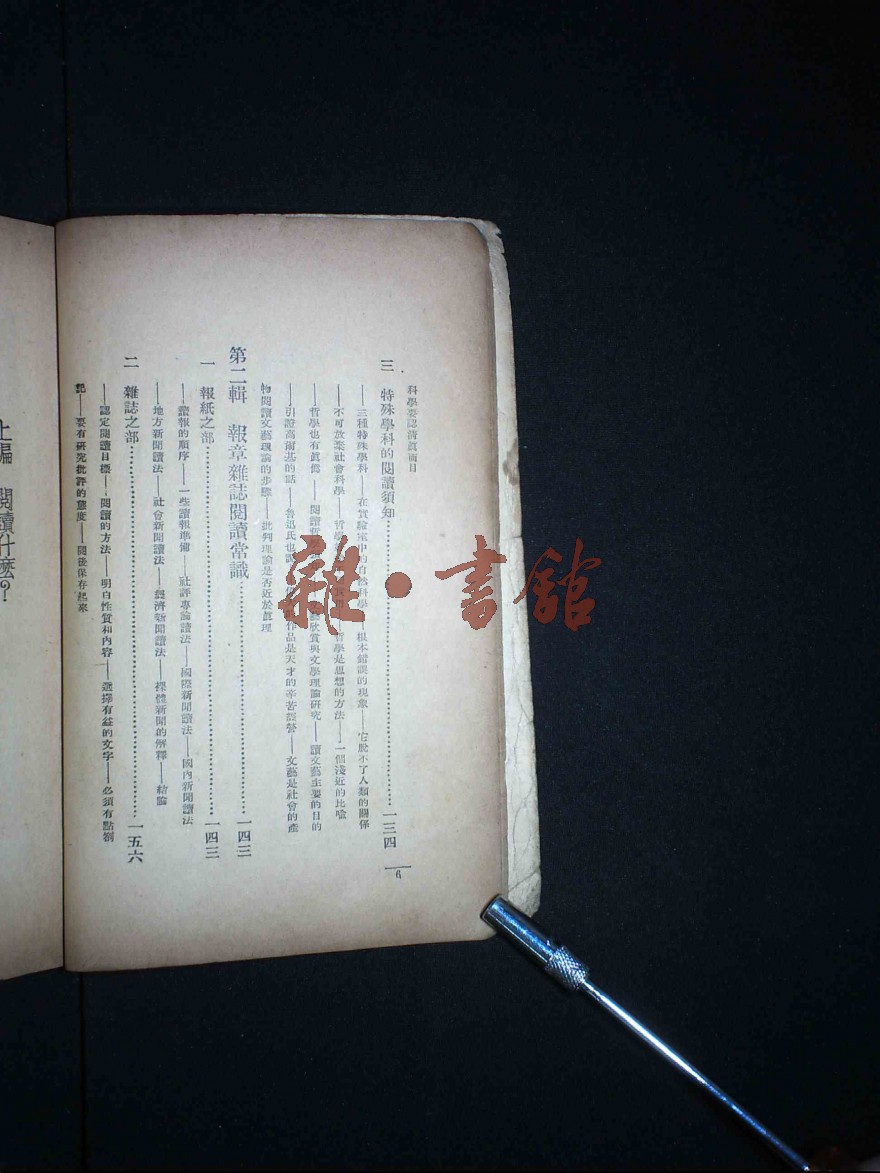 科學要認清眞面目
三 特殊學科的閱讀須知……一三四
——三種特殊學科——在實驗室中的自然科學——根本錯誤的現象——它脫不了人類的關係
——不可放棄社會科學——哲學是思想的方法——一個淺近的比喩
——哲學也有眞僞——閱讀哲學欣賞與文學理論硏究——讀文藝主要的目的
——引證高爾基的話——魯迅氏也說作品是天才的辛苦經營——文藝是社會的產
物閱讀文藝理論的步驟——批判理論是否近於眞理
第二輯 報章雜誌閱讀常識……一四三
一 報紙之部……一四三
——讀報的順序——一些讀報準備——社評專論讀法——國際新聞讀法——國內新聞讀法
——地方新聞讀法——社會新聞讀法——經濟新聞讀法——裸體新聞的解釋——結論
二 雜誌之部……一五六
——認定閱讀目標——閱讀的方法——明白性質和內容——選擇有益的文字——必須有點劄
記——要有硏究批評的態度——閱後保存起來
6
上編 閱讀什麼?
雜·書館